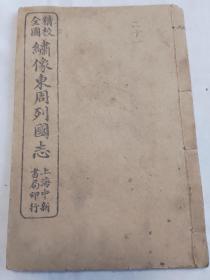 精校
全圖
繡像東周列國志
上海中新
書局印行